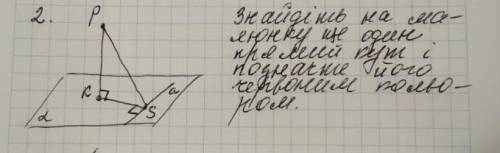 2.
P
Знайдіть на ма-
люнку ще один
прямий кут і
позначте його
червоним кольо-
ром.
K
a
S
α